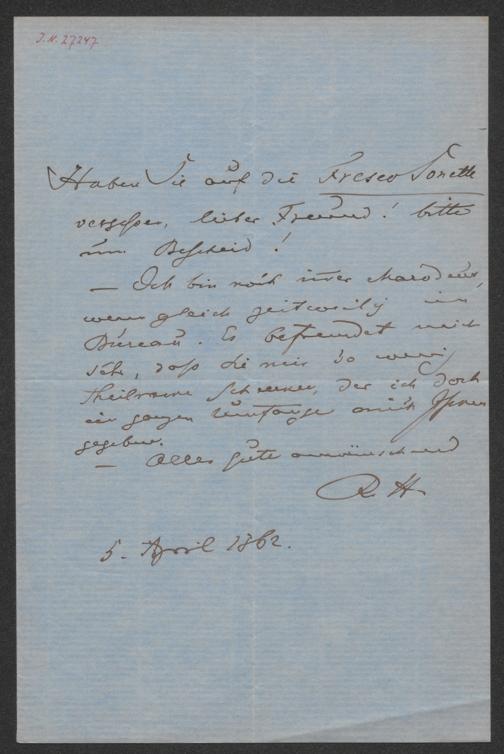 J.N. 27247
Haben Sie auf die Fresco Sonette
vergessen, lieber Freund! bitte
um Bescheid!
— Ich bin noch immer Marodeur,
wenngleich zeitweilig im
Bureau. Es befremdet mich
sehr, daß Sie mir so wenig
Theilnahme schenken, der ich doch
im ganzen Umfange mich Ihnen
gegeben.
— Alles Gute anwünschend
R H
5. April 1862.